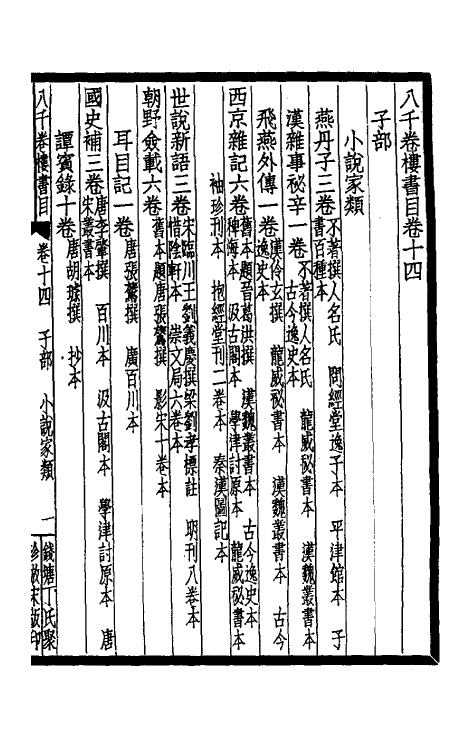 八千卷樓書目卷十四
子部
小說家類
燕丹子三卷不著撰人名氏 問經堂逸子本 平津館本 子書百種本
漢雜事祕辛一卷不著撰人名氏 龍威秘書本 漢魏叢書本 古今逸史本
飛燕外傳一卷漢伶玄撰 龍威秘書本 漢魏叢書本 古今逸史本
西京雜記六卷舊本題晉葛洪撰 漢魏叢書本 古今逸史本 稗海本 汲古閣本 學津討原本 龍威秘書本
袖珍刊本 抱經堂刊二卷本 秦漢圖記本
世說新語三卷宋臨川王劉義慶撰梁劉孝標註 明刊八卷本 惜陰軒本 崇文局六卷本
朝野僉載六卷舊本題唐張鷟撰 影宋十卷本
耳目記一卷唐張鷟撰 廣百川本
國史補三卷唐李肇撰 百川本 汲古閣本 學津討原本 唐宋叢書本
譚賓錄十卷唐胡璩撰 抄本
八千卷樓書目 卷十四 子部 小說家類 一 錢塘丁氏聚珍倣宋版印